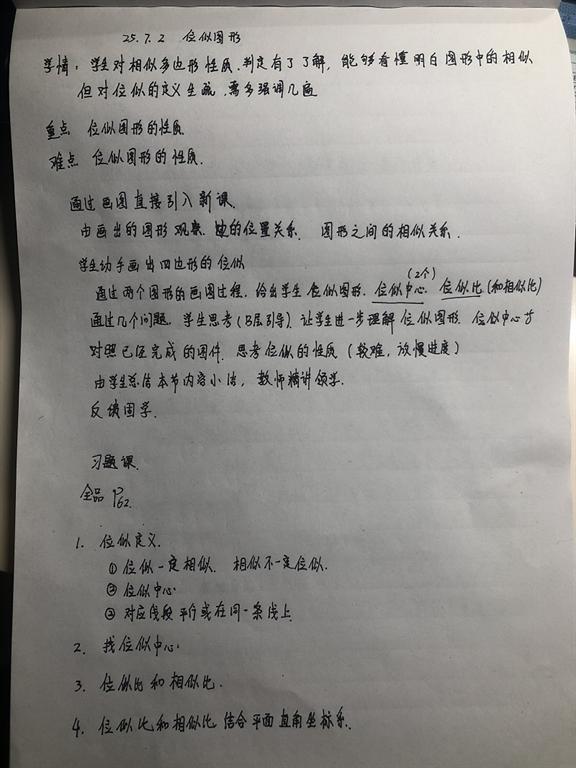 25.7.2 位似图形
学情：学生对相似多边形性质.判定有了了解，能够看懂明白图形中的相似
但对位似的定义生疏.需多强调几遍
重点 位似图形的性质
难点 位似图形的性质.
通过画图直接引入新课.
由画出的图形观察.的位置关系. 图形之间的相似关系.
学生动手画出四边形的位似
(2个)
通过两个图形的画图过程，给出学生位似图形.位似中心.位似比(和相似比)
通过几个问题，学生思考(B层引导).让学生进一步理解位似图形.位似中心
对照已经完成的图件.思考位似的性质(较难，放慢进度)
由学生总结本节内容小结，教师精讲领学.
反馈固学.
习题课.
全品 P62.
1. 位似定义.
① 位似一定相似. 相似不一定位似.
② 位似中心
③ 对应线段平行或在同一条线上
2. 找位似中心.
3. 位似比和相似比.
4. 位似比和相似比 结合平面直角坐标系.